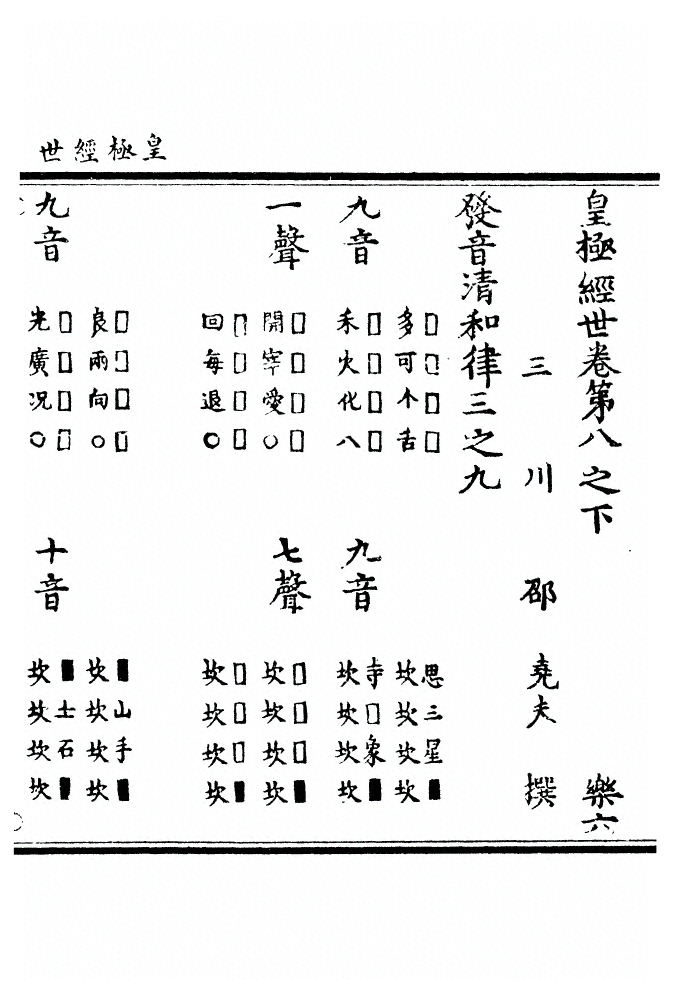 皇極經世
皇極經世卷第八之下 樂六
三川 邵 堯夫 撰
發音清和律三之九
□□□□ 思三星■
多可个舌 坎坎坎坎
九音 九音
□□□□ 寺□象■
禾火化八 坎坎坎坎
□□□□ □□□■
一聲 七聲
開宰愛○ 坎坎坎坎
□□□□ □□□■
回每退○ 坎坎坎坎
□□□□ ■山手■
良兩向○ 坎坎坎坎
□□□□ ■士石■
九音 十音
光廣况○ 坎坎坎坎